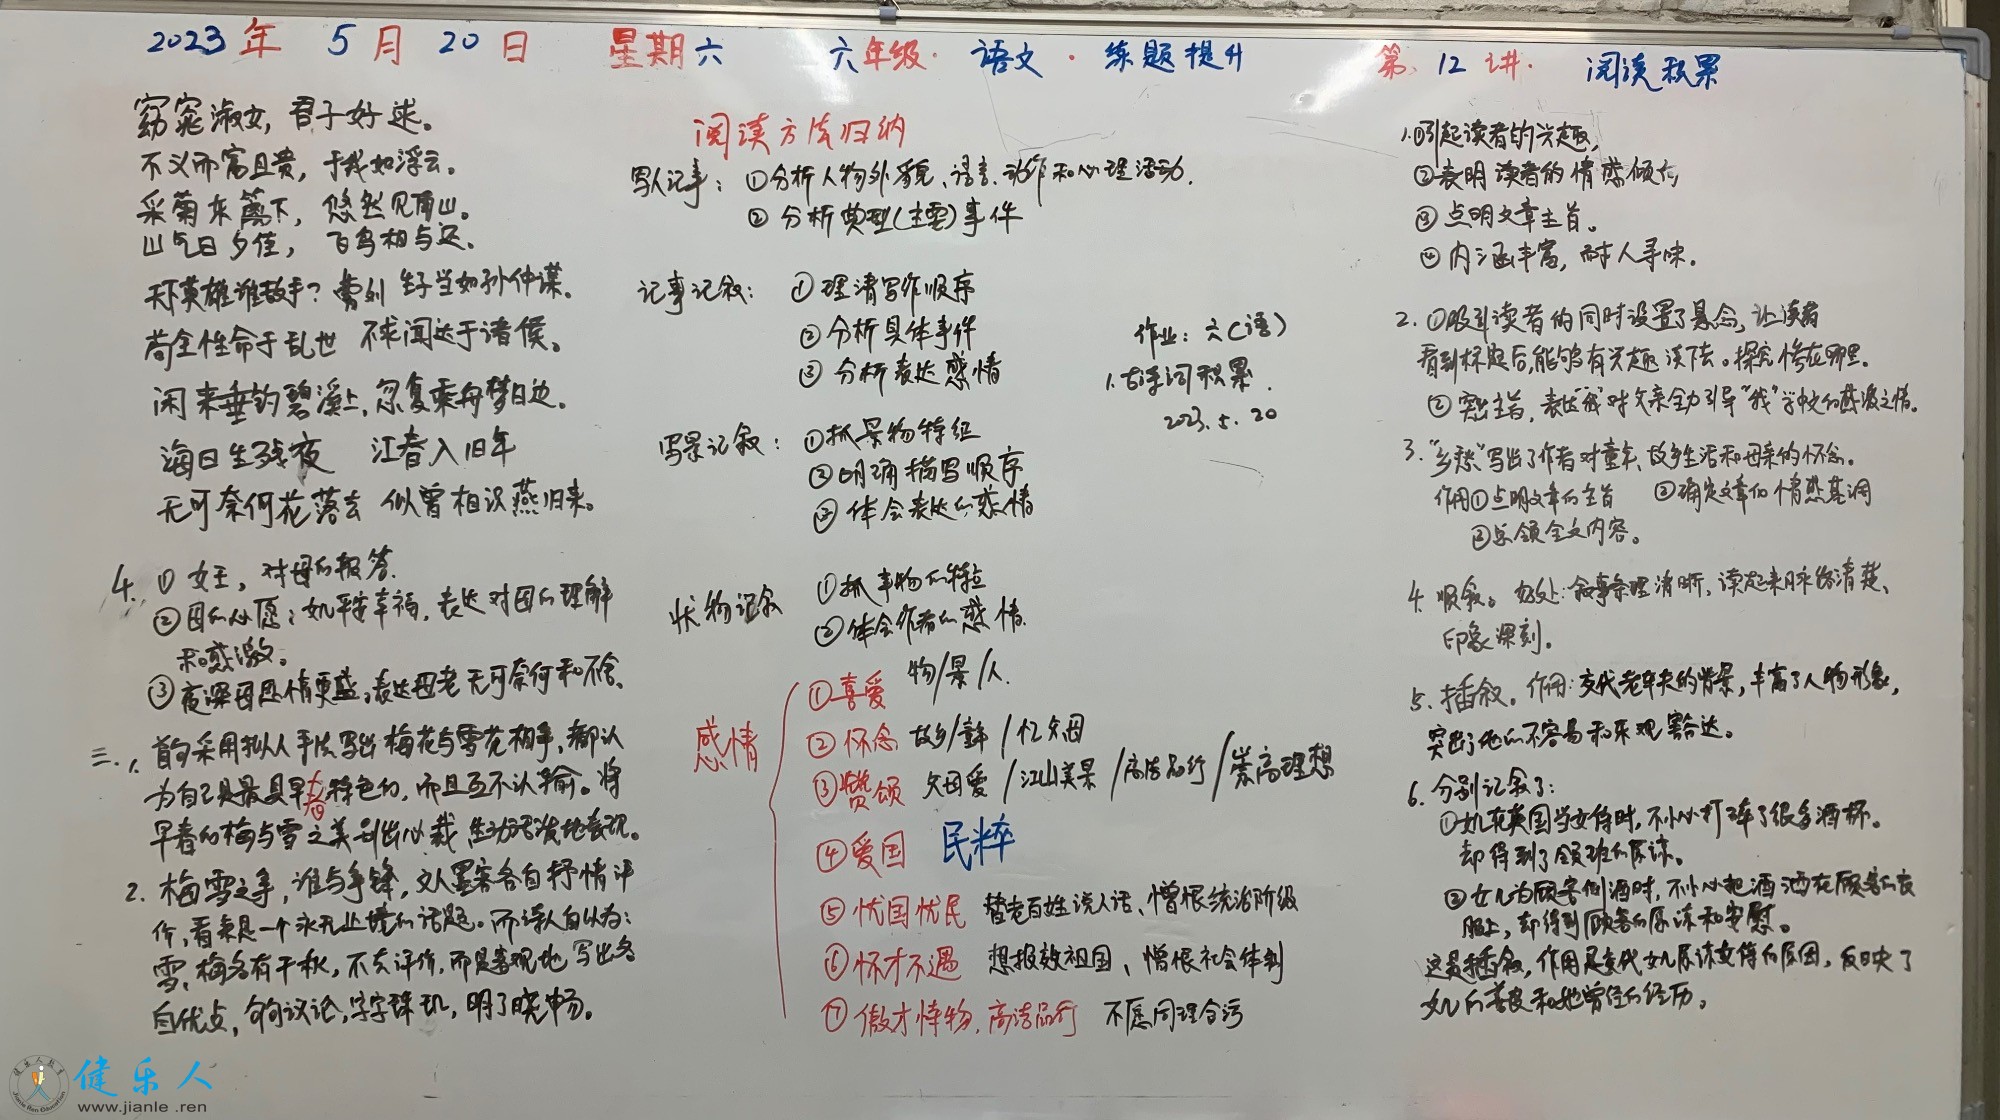 2023年 5月 20日 星期六 六年级·语文·练题提升 第12讲· 阅读积累
窈窕淑女,君子好逑。
不义而富且贵,于我如浮云。
采菊东篱下,悠然见南山。
山气日夕佳,飞鸟相与还。
天下英雄谁敌手?曹刘 生子当如孙仲谋。
苟全性命于乱世 不求闻达于诸侯。
闲来垂钓碧溪上,忽复乘舟梦日边。
海日生残夜 江春入旧年
无可奈何花落去 似曾相识燕归来。
4. ①女王,对母的报答.
②母的心愿:女儿平安幸福,表达对母的理解
和感激。
③夜深母恩情更盛,表达母老无可奈何和不舍。
三.1.首句采用拟人手法写出梅花与雪花相争,都认
为自己是最具早春特色的,而且互不认输。将
早春的梅与雪之美别出心裁 生动活泼地表现。
2.梅雪之争,谁与争锋,文人墨客各自抒情评
作,看来是一个永无止境的话题。而诗人自认为:
雪、梅各有千秋,不去评价,而是客观地写出各
自优点,句句议论,字字珠玑,明了晓畅。
阅读方法归纳
写人记事:①分析人物外貌、语言、动作和心理活动.
②分析典型(主要)事件
记事记叙:①理清写作顺序
②分析具体事件
③分析表达感情
写景记叙:①抓景物特征
②明确描写顺序
③体会表达的感情
状物记叙 ①抓事物的特征
②体会作者的感情.
感情
①喜爱 物/景/人.
②怀念 故乡/童年/忆父母
③赞颂 父母爱/江山美景/高洁品行/崇高理想
④爱国 民粹
⑤忧国忧民 替老百姓说人话、憎恨统治阶级
⑥怀才不遇 想报效祖国、憎恨社会体制
⑦傲才恃物,高洁品行 不愿同理合污
作业:六(语)
1.古诗词积累.
2023.5.20
1.①引起读者的兴趣,
②表明读者的情感倾向
③点明文章主旨。
④内涵丰富,耐人寻味.
2.①吸引读者的同时设置了悬念,让读者
看到标题后,能够有兴趣读下去。探究情在哪里.
②突出主旨,表达"我"对父亲全力引导"我"学中文的感激之情。
3."乡愁"写出了作者对童年、故乡生活和母亲的怀念。
作用①点明文章的主旨 ②确定文章的情感基调
③总领全文内容。
4.顺叙。好处:叙事条理清晰,读起来脉络清楚、
印象深刻。
5.插叙。作用:交代老车夫的背景,丰富了人物形象,
突出了他的不容易和乐观豁达。
6.分别记叙了:
①女儿在英国当女侍时,不小心打碎了很多酒杯。
却得到了领班的原谅。
②女儿为顾客倒酒时,不小心把酒洒在顾客的衣
服上,却得到顾客的原谅和安慰。
这是插叙,作用是交代女儿原谅女侍的原因,反映了
女儿的善良和她曾经的经历。
健乐人
www.jianle.ren